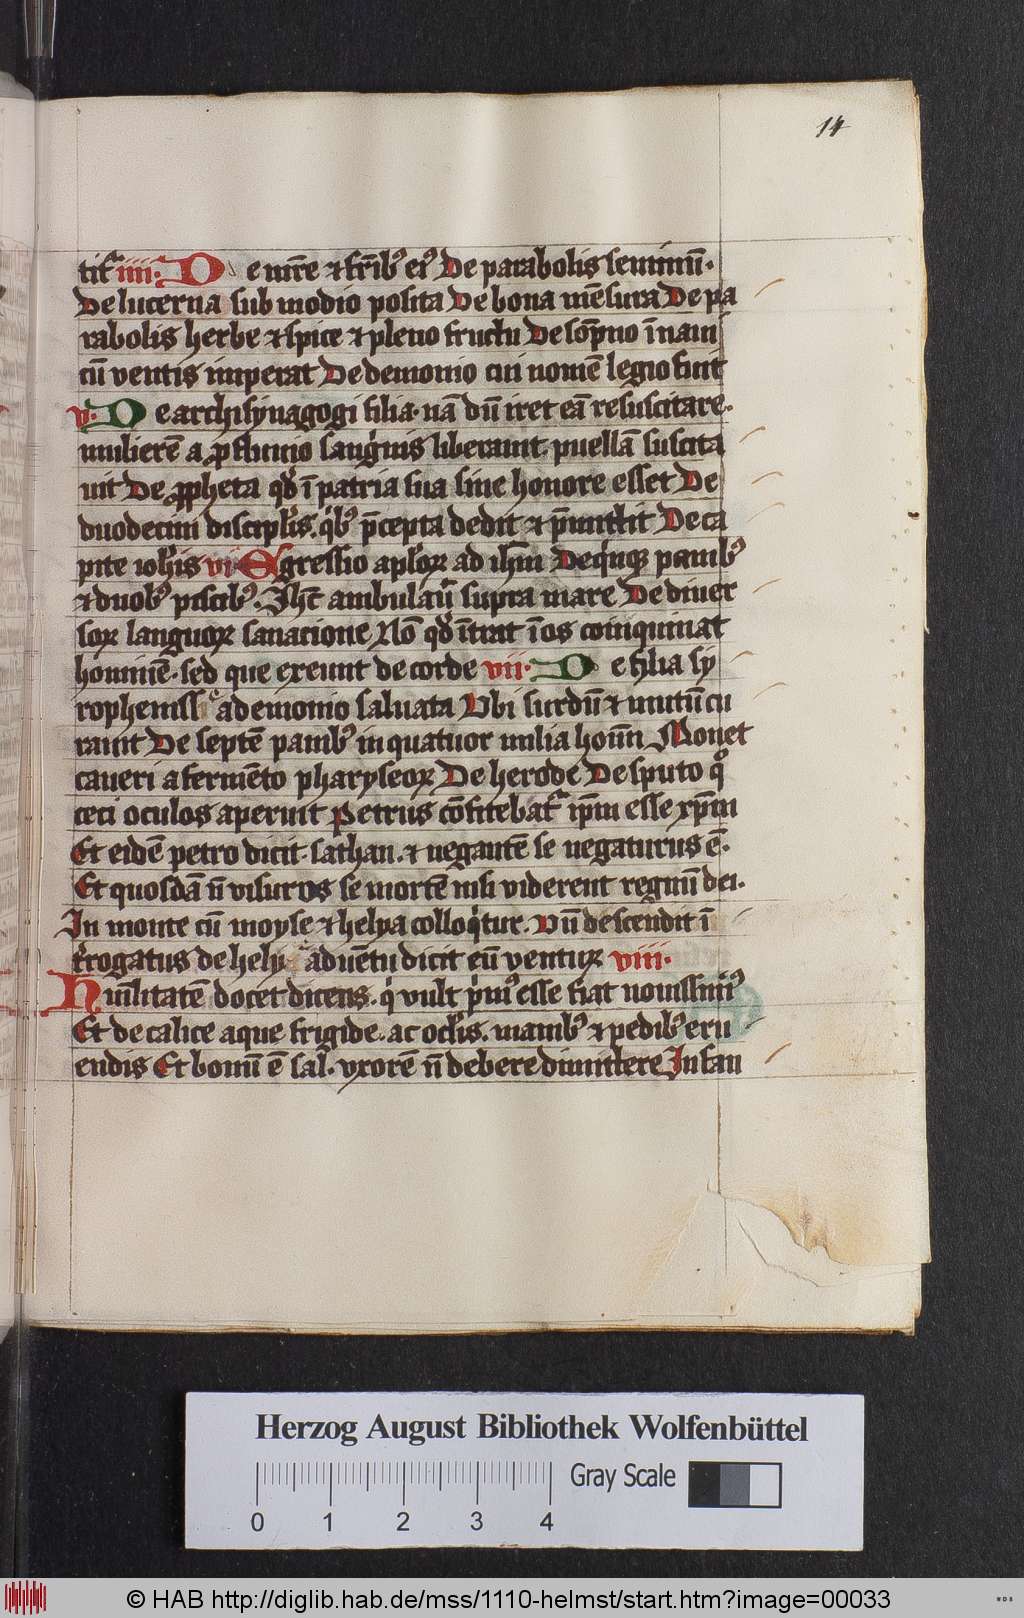 14
titr̃ iiii. De mr̃e ⁊ fr̃ib⁹ ei⁹ De parabolis seminũ.
De lucerna sub modio posita De bona mẽsura De pa
rabolis herbe ⁊ spice ⁊ pleno fructu De sop̃no ĩ naui
cũ ventis imperat De demonio cui nomẽ legio fuit
v. De archisynagogi filia. nã dũ iret eã resuscitare.
mulierẽ a p̱fluuio sanguis liberauit. puellã suscita
uit De p̱pheta qd̃ ĩ patria sua sine honore esset De
duodecim discipl̃is. qib⁹ p̃cepta dedit ⁊ p̃mittit De ca
pite ioh̃is vi Egressio aplõꝝ ad ih̃m De quinqꝫ panib⁹
⁊ duob⁹ piscib⁹. Ih̃c ambulauit supra mare De diuer
soꝝ languoꝝ sanacione Nõ qd̃ ĩtrat ĩ os coinquinat
hominẽ. sed que exeunt de corde vii. De filia sy
rophenisse a demonio saluata Vbi surdũ ⁊ mutũ cu
rauit De septẽ panib⁹ in quatuor milia hom̃ Monet
caueri a fermẽto pharyseoꝝ De herode De sputo qͦ
ceci oculos aperuit Petrus cõfitebatr̃ ip̃m esse xp̃m
Et eidẽ petro dicit. sathan. ⁊ negantẽ se negaturus ẽ.
Et quosdã ñ visuros se mortẽ nisi viderent regnũ dei.
In monte cũ moyse ⁊ helya colloqitur. Vñ descendit ĩ
t̃rogatus de hely a aduẽtu dicit eũ venturꝝ viii.
Humilitatẽ docet dicens. qi vult p̃im⁹ esse fiat nouissim⁹
Et de calice aque frigide. ac ocl̃is. manib⁹ ⁊ pedib⁹ eru
endis Et bonũ ẽ sal. vxorẽ ñ debere dimittere Infan
Herzog August Bibliothek Wolfenbüttel
Gray Scale
0 1 2 3 4
© HAB http://diglib.hab.de/mss/1110-helmst/start.htm?image=00033